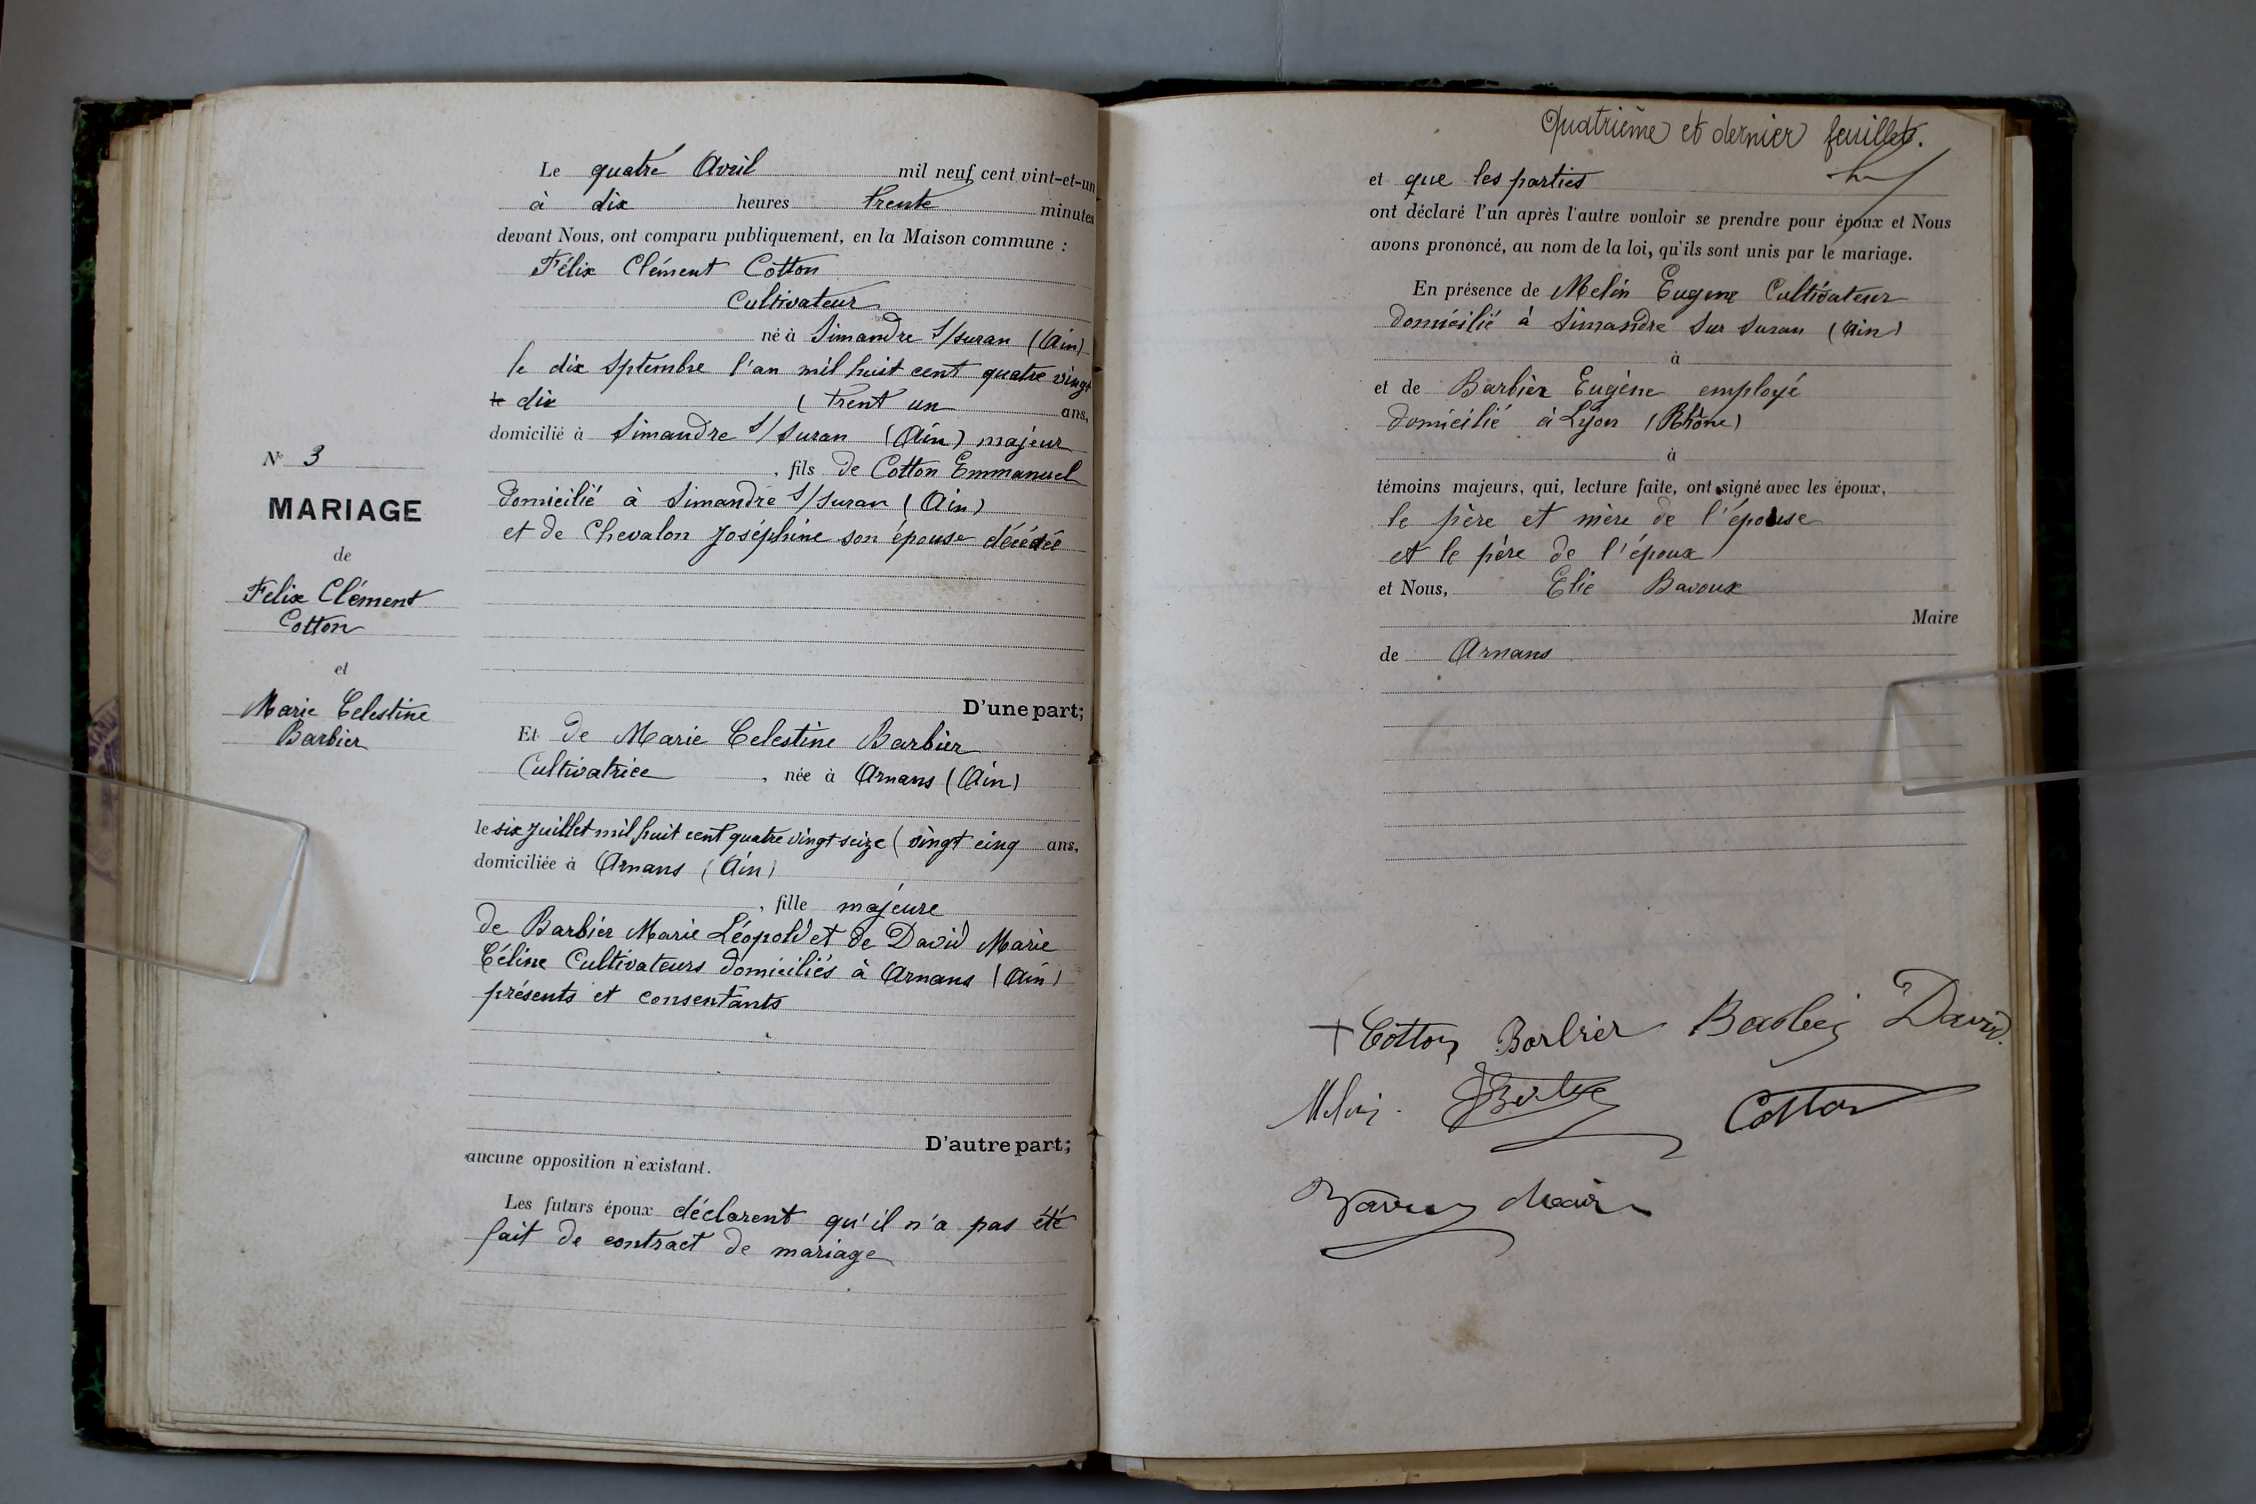 N° 3
MARIAGE
de
Félix Clément
Cotton
et
Marie Celestine
Barbier
Le quatre Avril mil neuf cent vint-et-un
à dix heures trente minutes
devant Nous, ont comparu publiquement, en la Maison commune :
Félix Clément Cotton
Cultivateur
né à Simandre s/suran (Ain)
le dix Sptembre l'an mil huit cent quatre vingt
dix ( trent un ans,
domicilié à Simandre s/suran (Ain) majeur
, fils de Cotton Emmanuel
domicilié à Simandre s/suran (Ain)
et de Chevalon Joséphine son épouse décédée
D'une part;
Et de Marie Celestine Barbier
Cultivatrice , née à Arnans (Ain)
le six Juillet mil huit cent quatre vingt seize ( vingt cinq ans,
domiciliée à Arnans (Ain)
, fille majeure
de Barbier Marie Léopold et de David Marie
Céline Cultivateurs domiciliés à Arnans (Ain)
présents et consentants
D'autre part;
aucune opposition n'existant.
Les futurs époux déclarent qu'il n'a pas été
fait de contract de mariage
Quatrième et dernier feuillet.
et que les parties
ont déclaré l'un après l'autre vouloir se prendre pour époux et Nous
avons prononcé, au nom de la loi, qu'ils sont unis par le mariage.
En présence de Melin Eugene Cultivateur
domicilié à Simandre sur suran (Ain)
à
et de Barbier Eugène employé
domicilié à Lyon (Rhône)
à
témoins majeurs, qui, lecture faite, ont signé avec les époux,
le père et mère de l'épouse
et le père de l'époux
et Nous, Elie Bavoux
Maire
de Arnans
Cotton Barbier Barbier David
Melin Cotton
Bavoux Maire